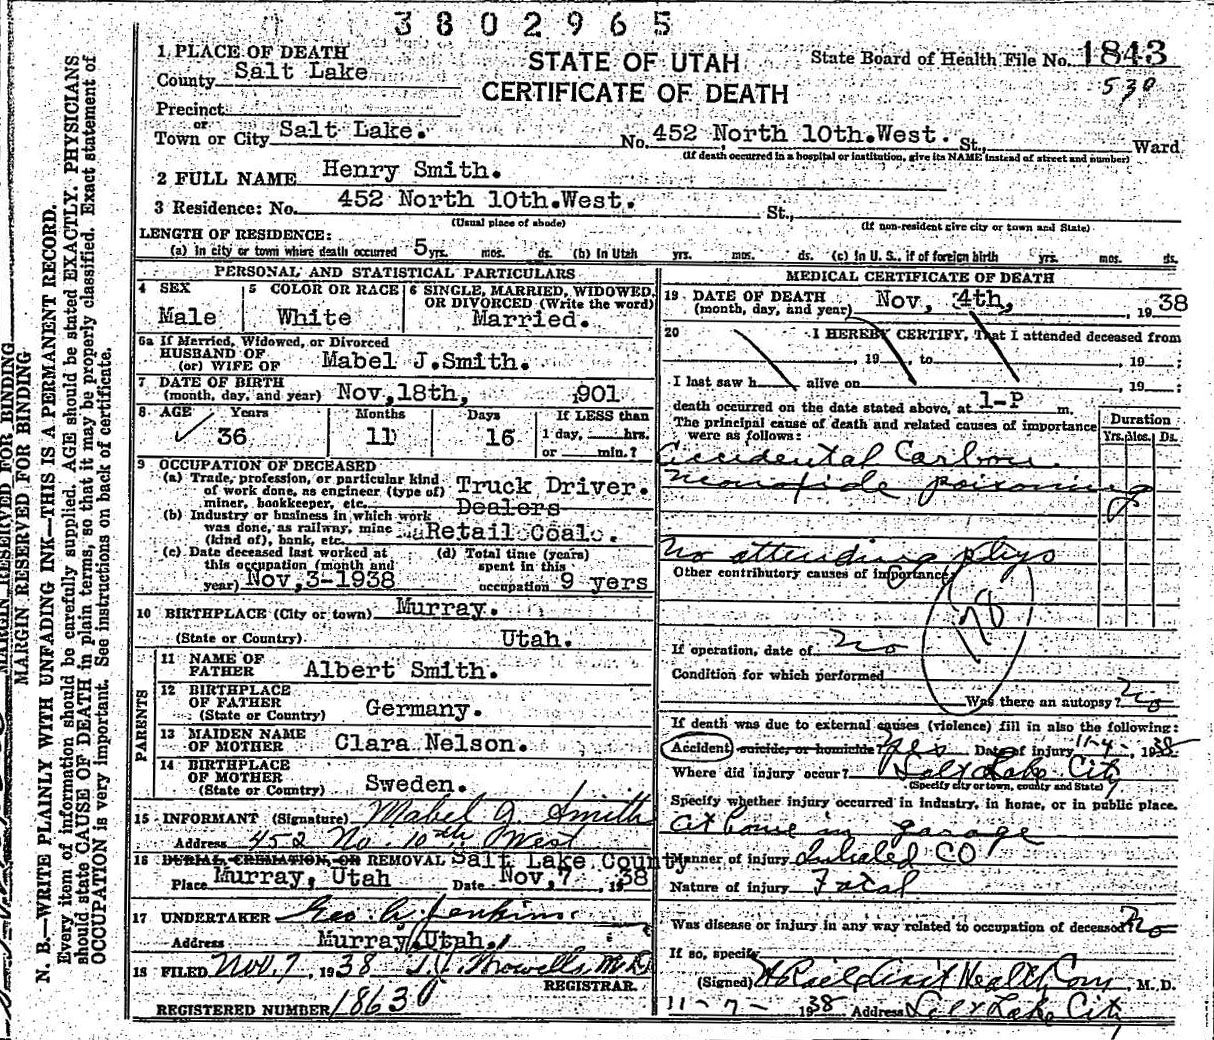 3802965
1 PLACE OF DEATH
STATE OF UTAH
State Board of Health File No. 1843
County Salt Lake
CERTIFICATE OF DEATH
530
Precinct
or
Town or City Salt Lake. No. 452 North 10th.West. St., Ward
(If death occurred in a hospital or institution, give its NAME instead of street and number)
2 FULL NAME Henry Smith.
3 Residence: No. 452 North 10th.West. St.,
(Usual place of abode) (If non-resident give city or town and State)
LENGTH OF RESIDENCE:
(a) In city or town where death occurred 5 yrs. mos. ds. (b) In Utah yrs. mos. ds. (c) In U. S., if of foreign birth yrs. mos. ds.
PERSONAL AND STATISTICAL PARTICULARS
4 SEX
Male
5 COLOR OR RACE
White
6 SINGLE, MARRIED, WIDOWED,
OR DIVORCED (Write the word)
Married.
6a If Married, Widowed, or Divorced
HUSBAND OF
(or) WIFE OF Mabel J.Smith.
7 DATE OF BIRTH
(month, day, and year) Nov,18th, ,901
8 AGE Years Months Days If LESS than
36 11 16 1 day, hrs.
or min.?
9 OCCUPATION OF DECEASED
(a) Trade, profession, or particular kind
of work done, as engineer (type of)
miner, bookkeeper, etc. Truck Driver.
Dealers
(b) Industry or business in which work
was done, as railway, mine
(kind of), bank, etc. Retail Coal.
(c) Date deceased last worked at
this occupation (month and
year) Nov,3-1938
(d) Total time (years)
spent in this
occupation 9 yers
10 BIRTHPLACE (City or town) Murray.
(State or Country) Utah.
PARENTS
11 NAME OF
FATHER Albert Smith.
12 BIRTHPLACE
OF FATHER
(State or Country) Germany.
13 MAIDEN NAME
OF MOTHER Clara Nelson.
14 BIRTHPLACE
OF MOTHER
(State or Country) Sweden.
15 INFORMANT (Signature) Mabel J. Smith
Address 452 No. 10th West
16 BURIAL, CREMATION, OR REMOVAL Salt Lake County
Place Murray, Utah Date Nov,7 , 1938
17 UNDERTAKER Geo. A. Jenkins
Address Murray,Utah.
18 FILED Nov. 7, 1938 M.D.
REGISTRAR.
REGISTERED NUMBER 1863
MEDICAL CERTIFICATE OF DEATH
19 DATE OF DEATH
(month, day, and year) Nov, 4th, , 1938
20 I HEREBY CERTIFY, That I attended deceased from
, 19 to , 19 ;
I last saw h alive on , 19 ;
death occurred on the date stated above, at 1-P m.
The principal cause of death and related causes of importance
were as follows:
Duration
Yrs. Mos. Ds.
Accidental Carbon
Monoxide poisoning
No attending phys
Other contributory causes of importance:
178
If operation, date of no
Condition for which performed
Was there an autopsy? no
If death was due to external causes (violence) fill in also the following:
Accident, suicide, or homicide? yes Date of injury 11-4-, 1938
Where did injury occur? Salt Lake City
(Specify city or town, county and State)
Specify whether injury occurred in industry, in home, or in public place.
At home in garage
Manner of injury Inhaled CO
Nature of injury Fatal
Was disease or injury in any way related to occupation of deceased? no
If so, specify
(Signed) Health Com , M. D.
11-7- 1938 Address Salt Lake City
MARGIN RESERVED FOR BINDING
MARGIN RESERVED FOR BINDING
N. B.—WRITE PLAINLY WITH UNFADING INK—THIS IS A PERMANENT RECORD.
Every item of information should be carefully supplied. AGE should be stated EXACTLY. PHYSICIANS
should state CAUSE OF DEATH in plain terms, so that it may be properly classified. Exact statement of
OCCUPATION is very important. See instructions on back of certificate.